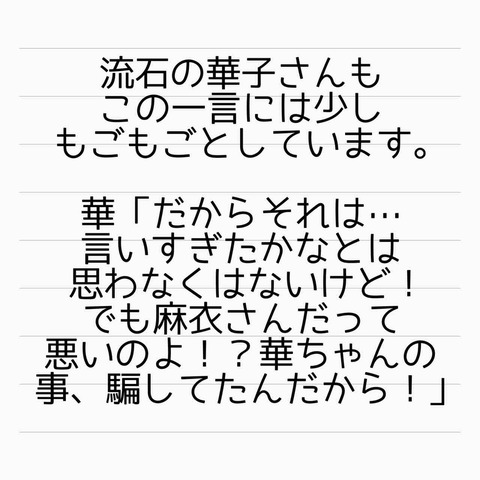 流石の華子さんも
この一言には少し
もごもごとしています。
華「だからそれは…
言いすぎたかなとは
思わなくはないけど！
でも麻衣さんだって
悪いのよ！？華ちゃんの
事、騙してたんだから！」